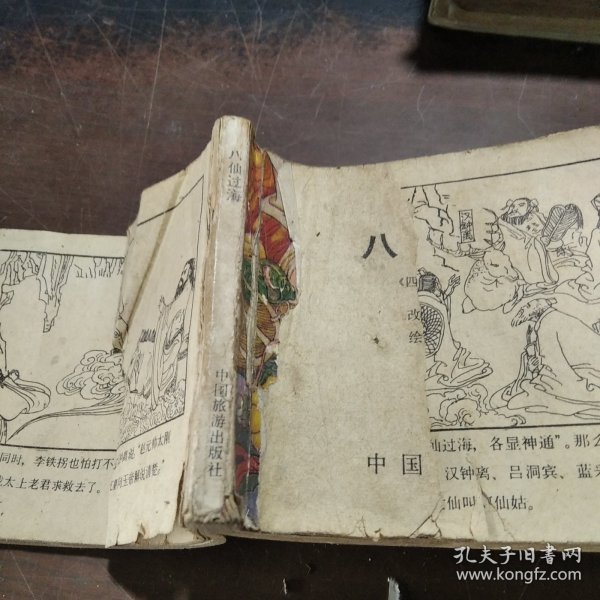 八仙过海
中国旅游出版社
八
《四
改
绘
中国
汉钟离
仙过海，各显神通”。那么
汉钟离、吕洞宾、蓝采
仙叫
仙姑。
同时，李铁拐也怕打不
太上老君求救去了。
孔夫子旧书网
www.kongfz.com